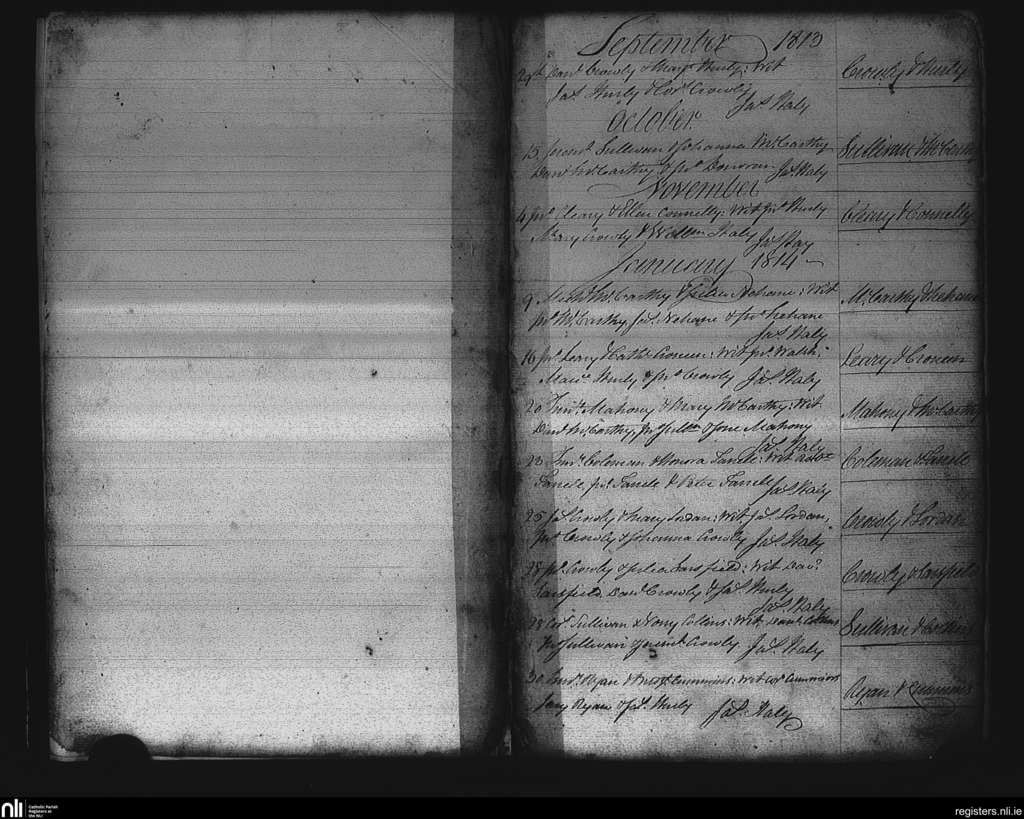 September 1813
29th Danl Crowly & Margt Hurly: Wit Crowly & Hurly
Jas. Hurly & Cors. Crowly
Jas. Haly
October
15 Sullivan & Johanna McCarthy Sullivan & McCarthy
Danl McCarthy & Jno. Donovan Jas. Haly
November
4 Jno. Cleary & Ellen Connelly: Wit Jno. Hurly Cleary & Connelly
Mary Crowly & Willm Haly
Jas.
January 1814
9 McCarthy & Nehane: Wit McCarthy & Nehane
Jno. McCarthy, Jas. Nehane & Jno. Nehane
Jas. Haly
16 Jno. Leary & Cathe. Cronin: Wit Jno. Walsh Leary & Cronin
Hurly & Jno. Crowly Jas. Haly
20 Timy. Mahony & Mary McCarthy: Wit Mahony & McCarthy
Danl McCarthy, Mahony
Jas. Haly
23 Coleman & Honora Farrell: Wit Coleman & Farrell
Farrell, Jno. Farrell & Peter Farrell Jas. Haly
25 Jas. Crowly & Mary Jordan: Wit Jas. Jordan, Crowly & Jordan
Jno. Crowly & Johanna Crowly Jas. Haly
28 Jno. Crowly & Julia Sarsfield: Wit Davd. Crowly & Sarsfield
Sarsfield, Danl Crowly & Jas. Hurly
Jas. Haly
28 Cors. Sullivan & Nory Collins: Wit Danl Collins Sullivan & Collins
Jno. Sullivan & Crowly Jas. Haly
30 Ryan & Cummins: Wit Cors. Cummins Ryan & Cummins
Ryan & Jas. Hurly Jas. Haly
nli
Catholic Parish
Registers at
the NLI
registers.nli.ie